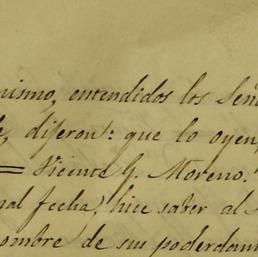 nismo, entendidos los Señ
dijeron: que lo oyen,
= Vicente G. Moreno.
nal fecha, hice saber al
ombre de sus poderdan